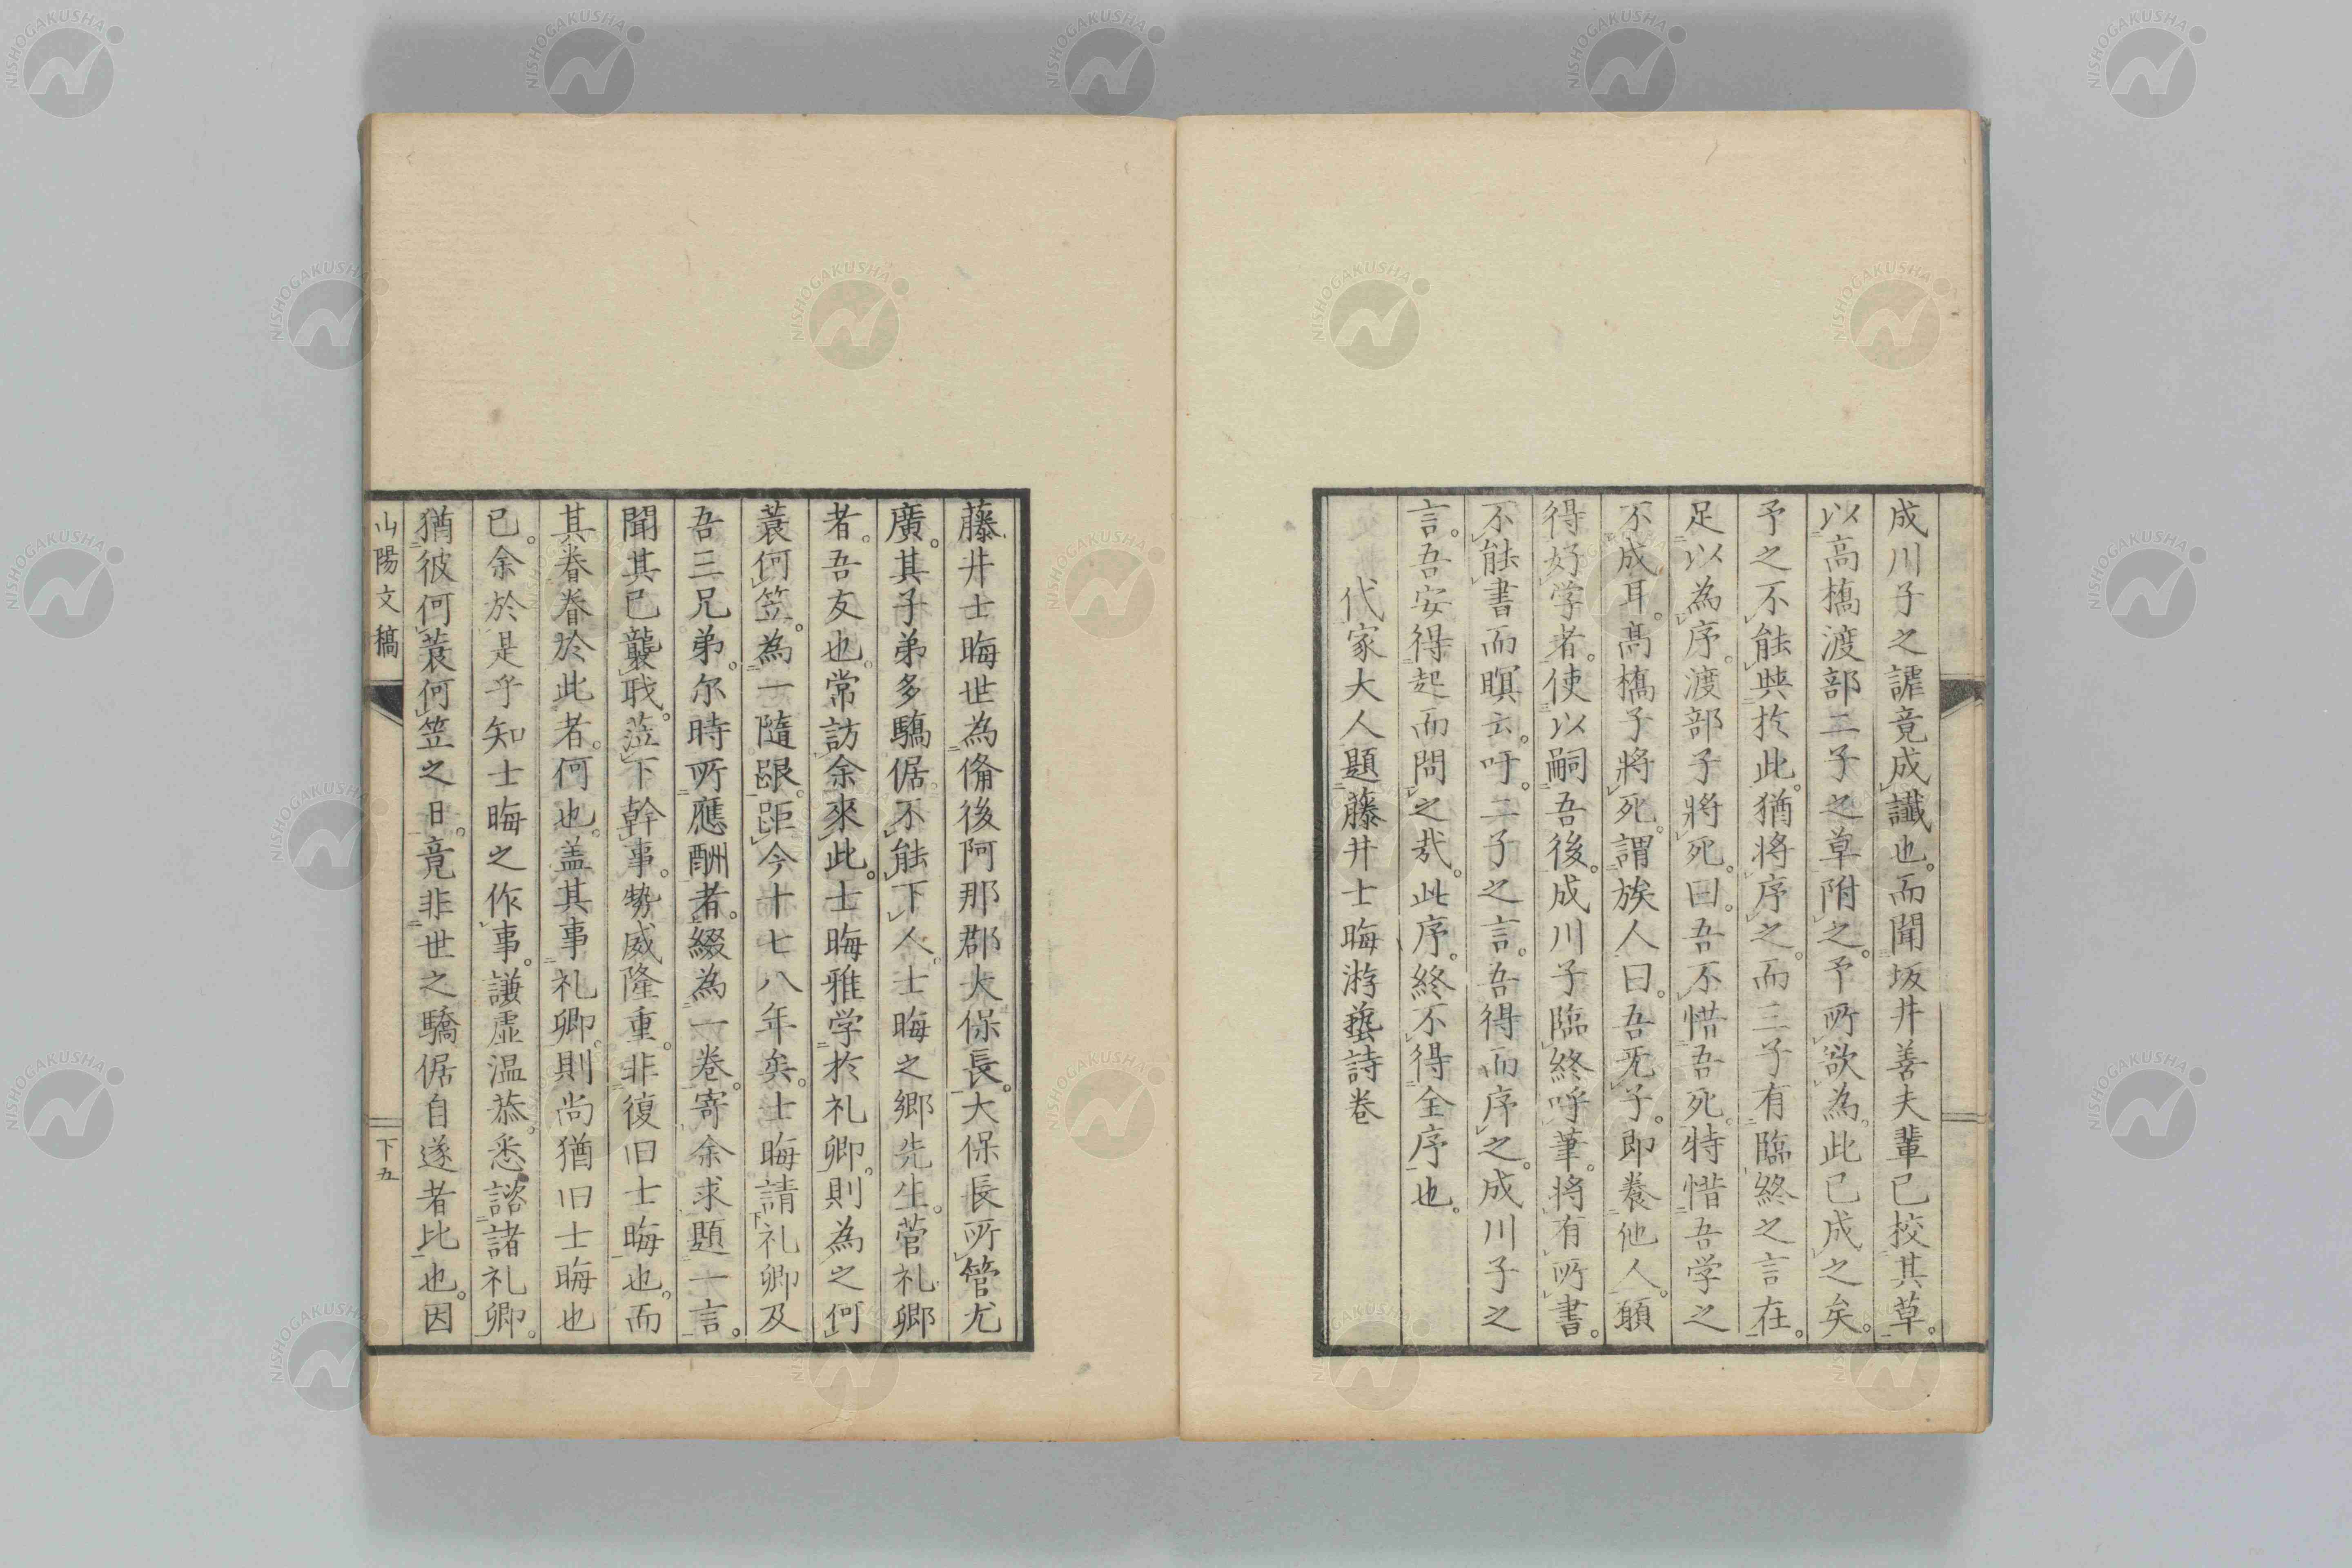 成川子之謔竟成讖也。而聞坂井善夫輩已校其草。
以高橋渡部二子之草附之。予所欲為。此已成之矣。
予之不能與於此。猶將序之。而三子有臨終之言在。
足以為序。渡部子將死。曰。吾不惜吾死。特惜吾学之
不成耳。髙橋子將死。謂族人曰。吾无子。即養他人。願
得好学者。使以嗣吾後。成川子臨終呼筆。將有所書。
不能書而瞑云。吁。二子之言。吾得而序之。成川子之
言。吾安得起而問之哉。此序。終不得全序也。
代家大人題藤井士晦游藝詩卷
藤井士晦世為備後阿那郡大保長。大保長所管尤
廣。其子弟多驕倨。不能下人。士晦之郷先生。菅礼卿
者。吾友也。常訪余來此。士晦雅学於礼卿。則為之何
蓑何笠。為一隨跟。距今十七八年矣。士晦請礼卿及
吾三兄弟。尔時所應酬者。綴為一卷。寄余求題一言。
聞其已襲職。莅下幹事。勢威隆重。非復旧士晦也。而
其眷眷於此者。何也。盖其事礼卿。則尚猶旧士晦也
已。余於是乎知士晦之作事。謙虚温恭。悉諮諸礼卿。
猶彼何蓑何笠之日。竟非世之驕倨自遂者比也。因
山陽文稿
下五